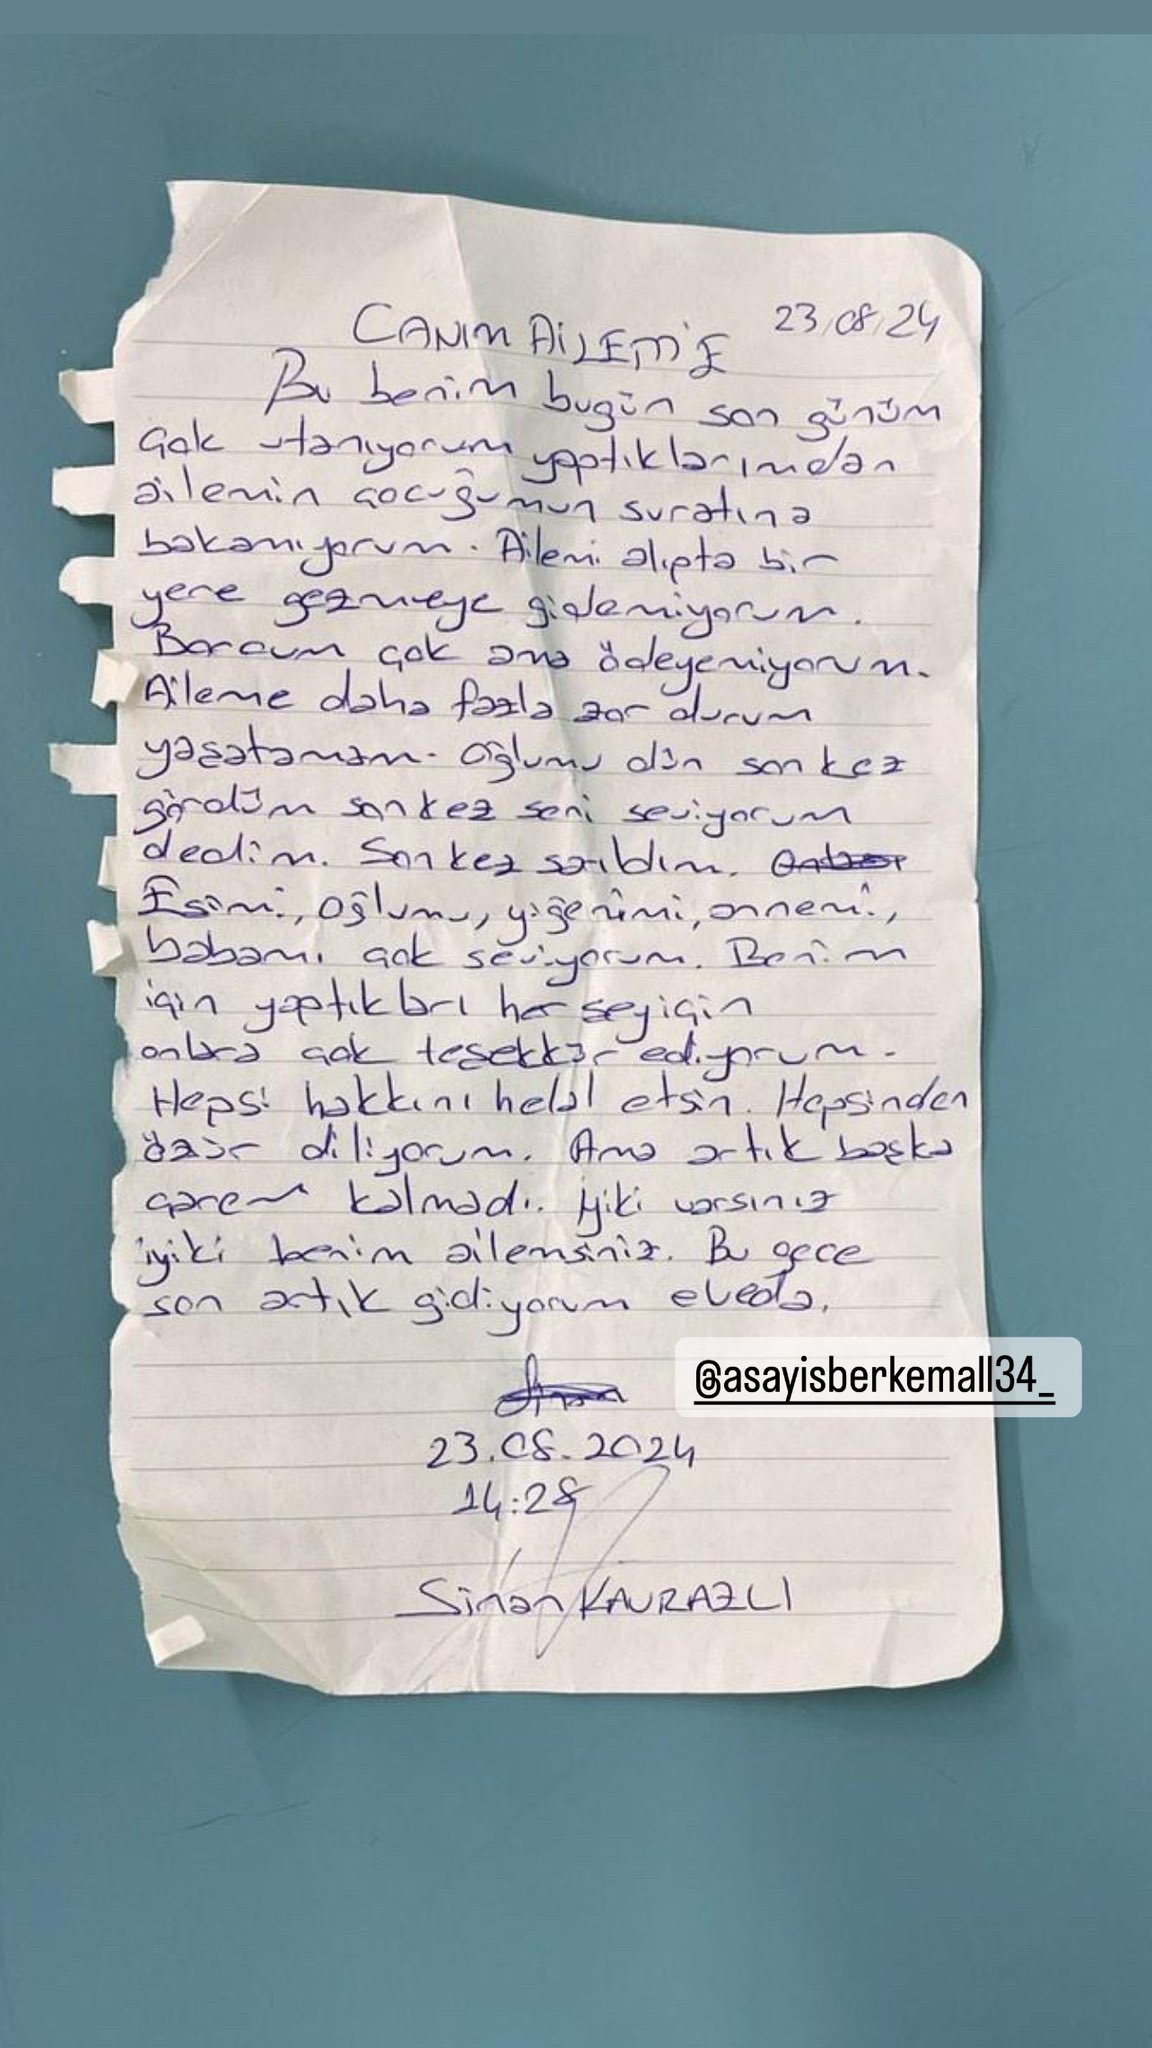 CANIM AİLEM'E 23/08/24
Bu benim bugün son günüm
çok utanıyorum yaptıklarımdan
ailemin çocuğumun suratına
bakamıyorum. Ailemi alıpta bir
yere gezmeye gidemiyorum.
Borcum çok ama ödeyemiyorum.
Aileme daha fazla zor durum
yaşatamam. Oğlumu dün son kez
gördüm son kez seni seviyorum
dedim. Son kez sarıldım.
Eşimi, oğlumu, yiğenimi, annemi,
babamı çok seviyorum. Benim
için yaptıkları herşey için
onlara çok teşekkür ediyorum.
Hepsi hakkını helal etsin. Hepsinden
özür diliyorum. Ama artık başka
çarem kalmadı. İyiki varsınız
iyiki benim ailemsiniz. Bu gece
son artık gidiyorum elveda.
@asayisberkemall34_
23.08.2024
14:28
Sinan KAVRAZLI